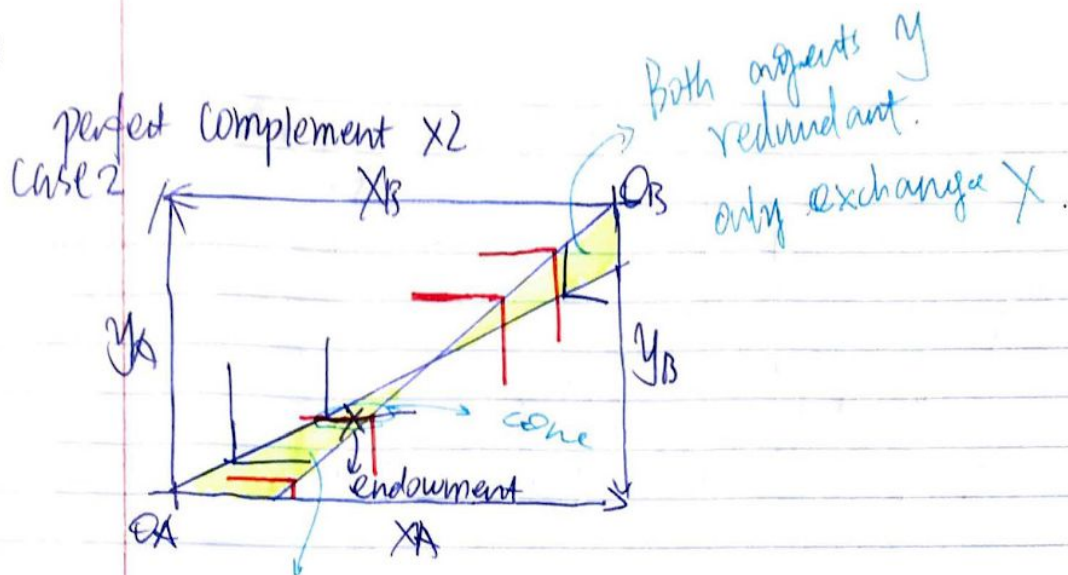 perfect complement X2
case2
Both angents y
redundant.
only exchange X.
XB
OB
yA
yB
cone
endowment
OA
XA